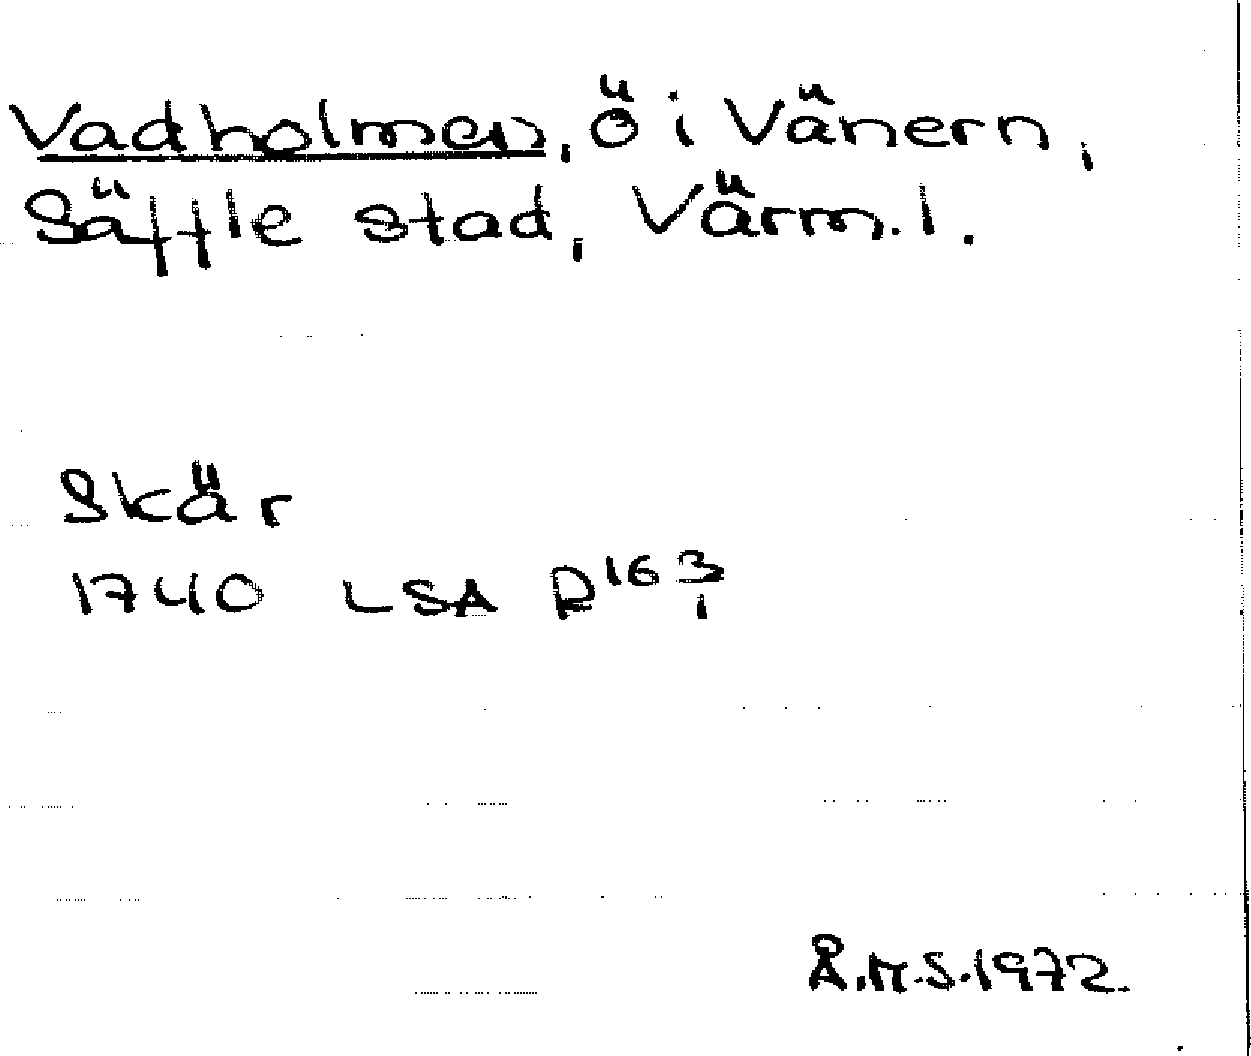 Vadholmen, ö i Vänern,
Säffle stad, Värm.l.
Skär
1740 LSA R16 3/1
Å.H.S.1972.